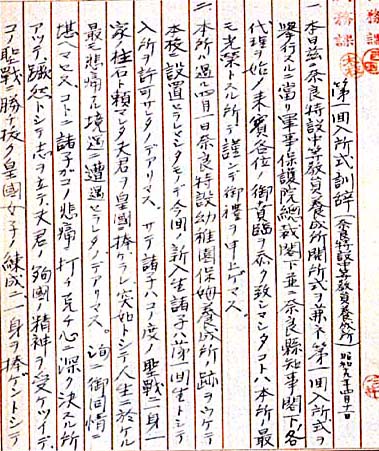 第一回入所式訓辞(奈良特設中等教員養成所)昭和十九年四月十日
一、本日茲ニ奈良特設中等教員養成所開所式ヲ兼ネ第一回入所式ヲ
挙行スルニ当リ軍事保護院総裁閣下並ニ奈良県知事閣下各
代理ヲ始メ来賓各位ノ御貴臨ヲ忝ク致シマシタコトハ本所ノ最
モ光栄トスル所デ謹ンデ御禮ヲ申上ゲマス。
二、本所ハ過ル四月一日奈良特設幼稚園保姆養成所ノ跡ヲウケテ
本校ニ設置セラレマシタモノデ今回ノ新入生諸子ハ第一回生トシテ
入所ヲ許可サレタノデアリマス。サテ諸子ハ今度ノ聖戦ニ一身一
家ノ柱石ト頼マレタ夫君ヲ皇國ニ捧ゲラレ突如トシテ人生ニ於ケル
最モ悲痛ナ境遇ニ遭遇セラレタノデアリマス。洵ニ御同情ニ
堪ヘマセヌ。コトニ諸子ガコノ悲痛ニ打チ克チ心ニ深ク決スル所
アッテ、蹶然トシテ志ヲ立テ、夫君ノ殉國ノ精神ヲ受ケツイデ、
コノ聖戦ニ勝チ抜ク皇國女子ノ練成ニ一身ヲ捧ゲントシテ